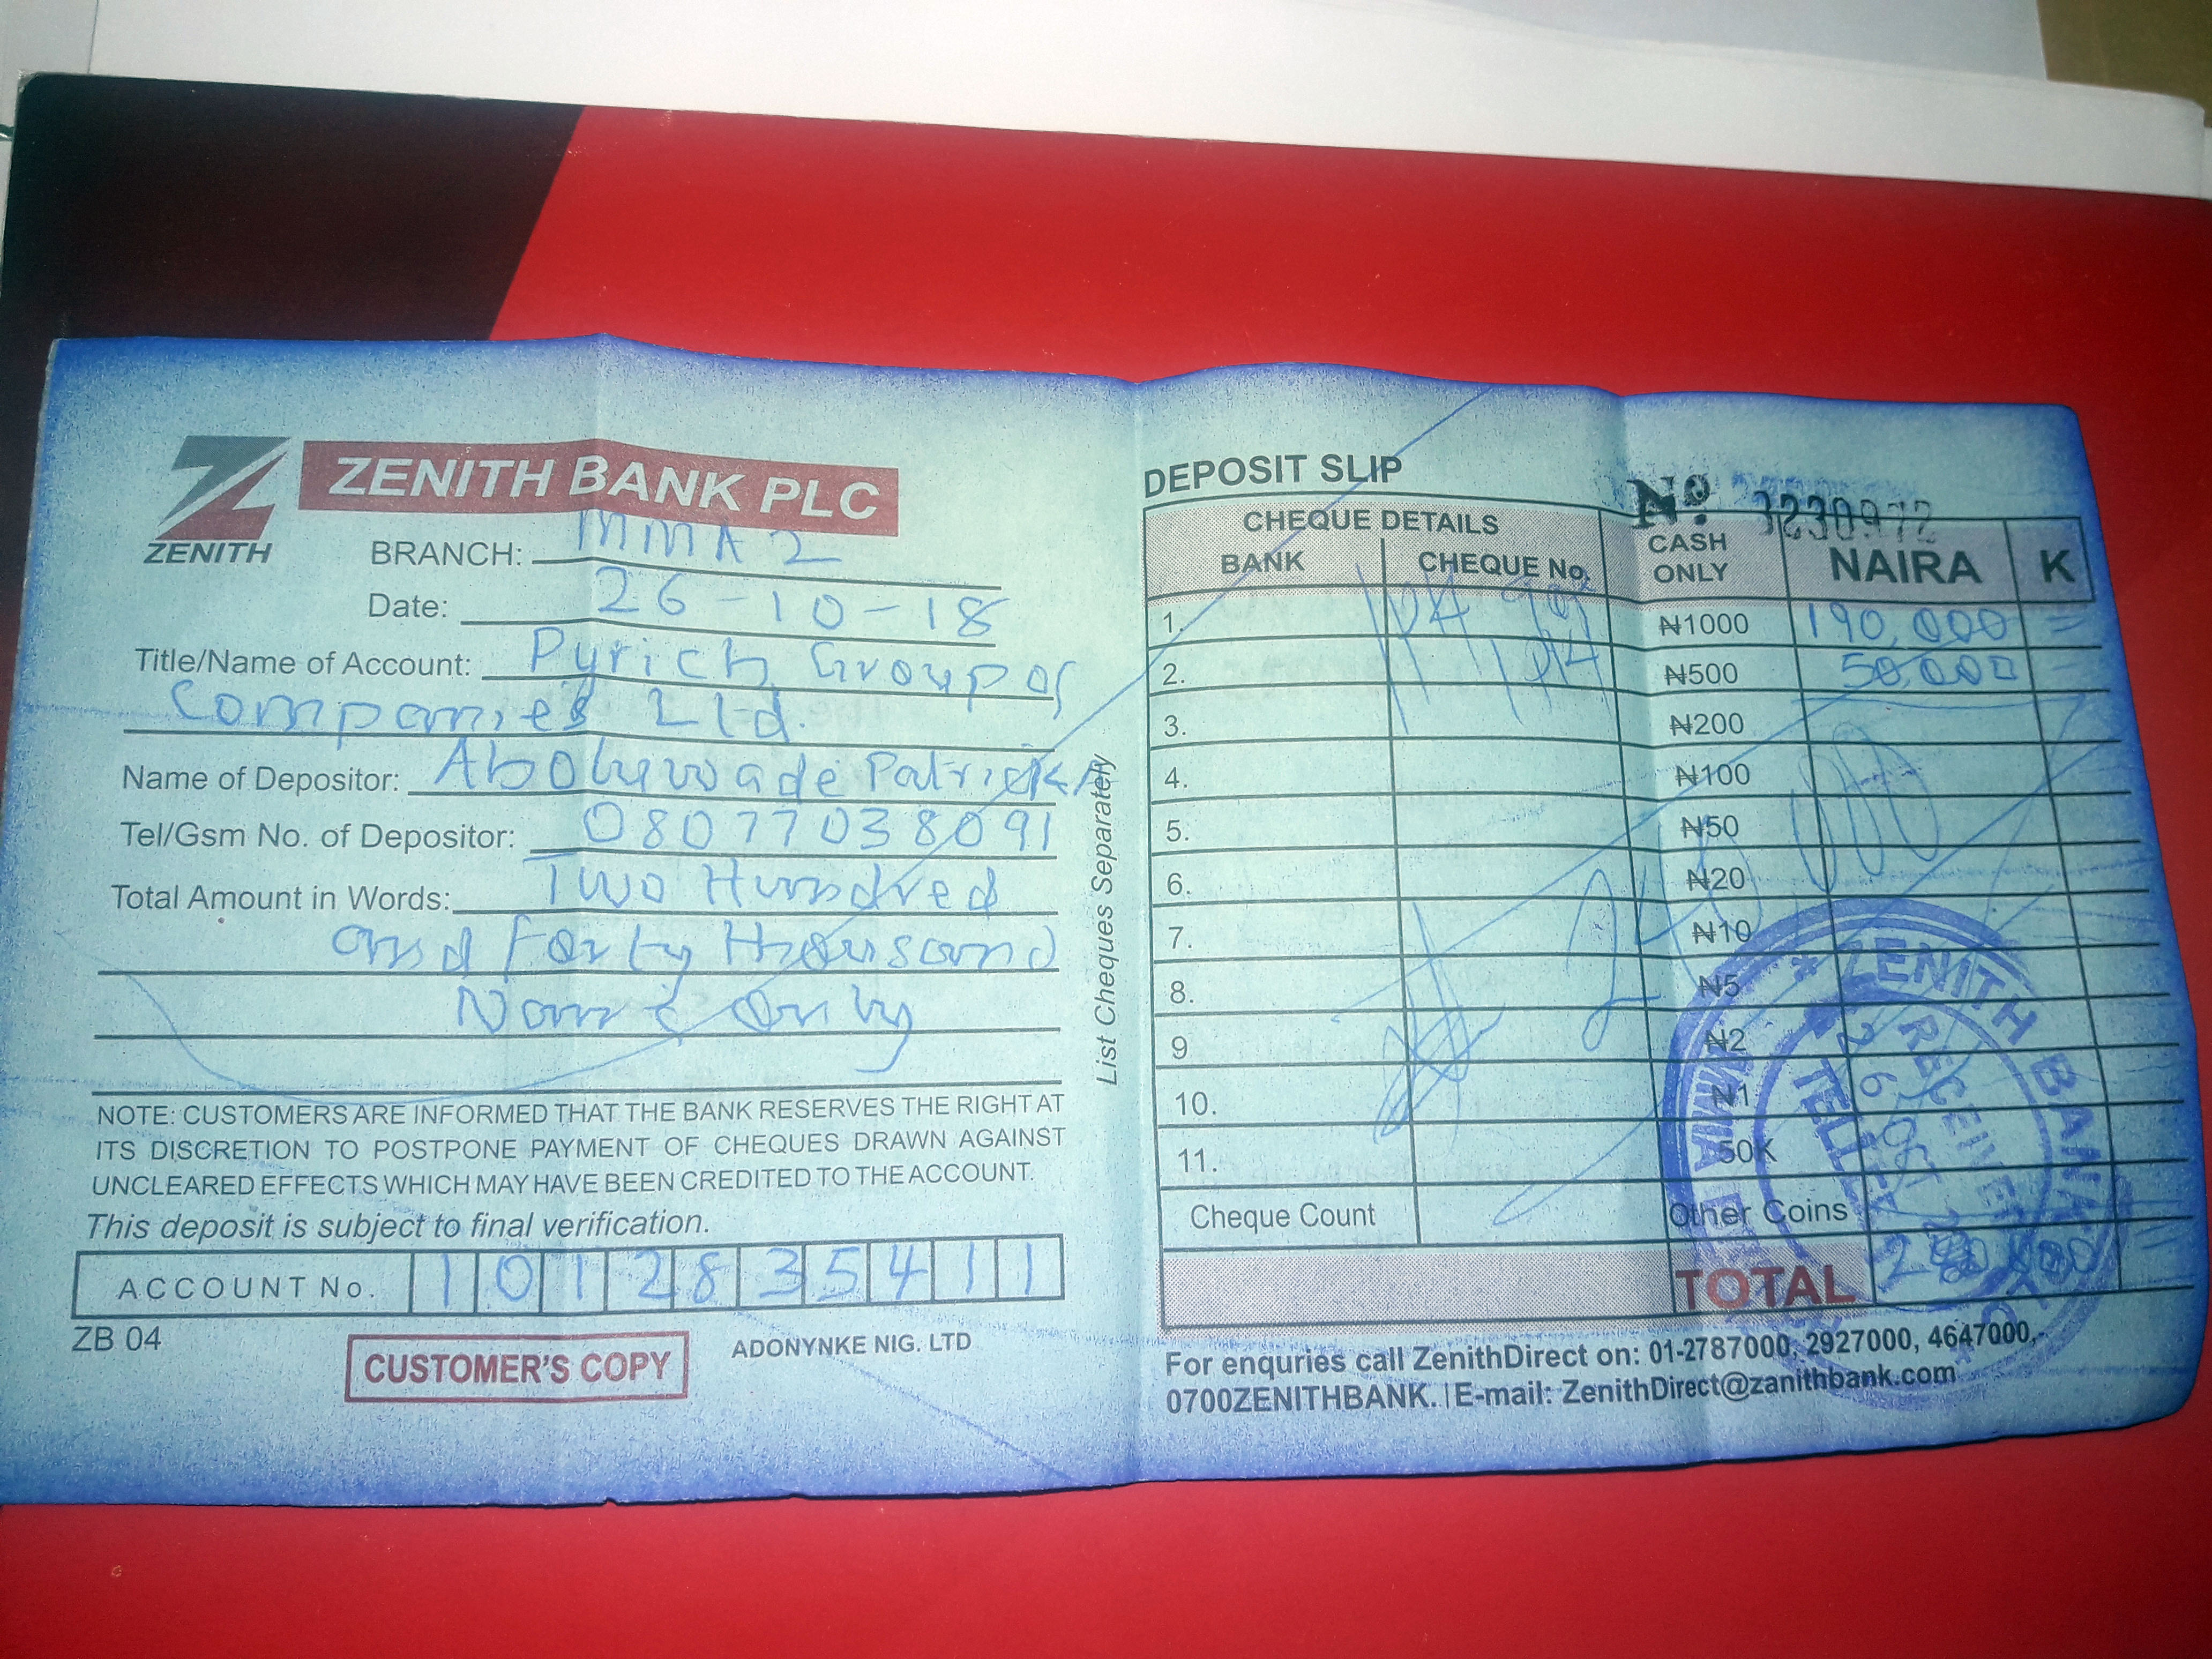 ZENITH BANK PLC
ZENITH
BRANCH: MMA 2
Date: 26-10-18
Title/Name of Account: Pyrich Group of
Companies Ltd.
Name of Depositor: Aboluwade Patrick A
Tel/Gsm No. of Depositor: 08077038091
Total Amount in Words: Two Hundred
and Forty Thousand
Naira Only
NOTE: CUSTOMERS ARE INFORMED THAT THE BANK RESERVES THE RIGHT AT
ITS DISCRETION TO POSTPONE PAYMENT OF CHEQUES DRAWN AGAINST
UNCLEARED EFFECTS WHICH MAY HAVE BEEN CREDITED TO THE ACCOUNT.
This deposit is subject to final verification.
ACCOUNT No. 1012835411
ZB 04
CUSTOMER'S COPY
ADONYNKE NIG. LTD
List Cheques Separately
DEPOSIT SLIP
No 3230972
CHEQUE DETAILS
BANK CHEQUE No. CASH ONLY NAIRA K
1. ₦1000 190,000 =
2. ₦500 50,000 -
3. ₦200
4. ₦100
5. ₦50
6. ₦20
7. ₦10
8. ₦5
9 ₦2
10. ₦1
11. 50K
Cheque Count Other Coins
TOTAL
ZENITH BANK
RECEIVE
26 OCT
TELLER
For enquries call ZenithDirect on: 01-2787000, 2927000, 4647000,
0700ZENITHBANK. | E-mail: ZenithDirect@zanithbank.com